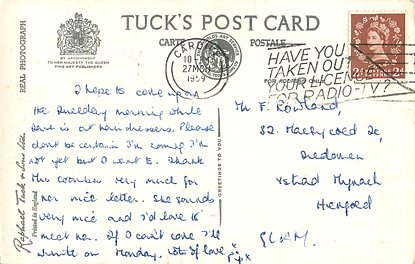 TUCK'S POST CARD
REAL PHOTOGRAPH
BY APPOINTMENT
TO HER MAJESTY THE QUEEN
FINE ART PUBLISHERS
CARTE POSTALE
CARD
10
27 NOV
1959
HAVE YOU
TAKEN OUT
YOUR LICENCE
FOR RADIO-TV?
FOR ADDRESS ONLY
I hope to come upon
the Tuesday morning while
is at hairdressers. Please
don't be certain I'm coming I'm
not yet but I want to. Thank
the very much for
her nice letter. She sounds
very nice and I'd love to
meet her. If I can't come I'll
write on Monday. Lots of love
GREETINGS TO YOU
Raphael Tuck & Sons Ltd.
Printed in England
Mr F. Rowland,
52. Maesycoed
Ystrad Mynach
Hengoed
GLAM.